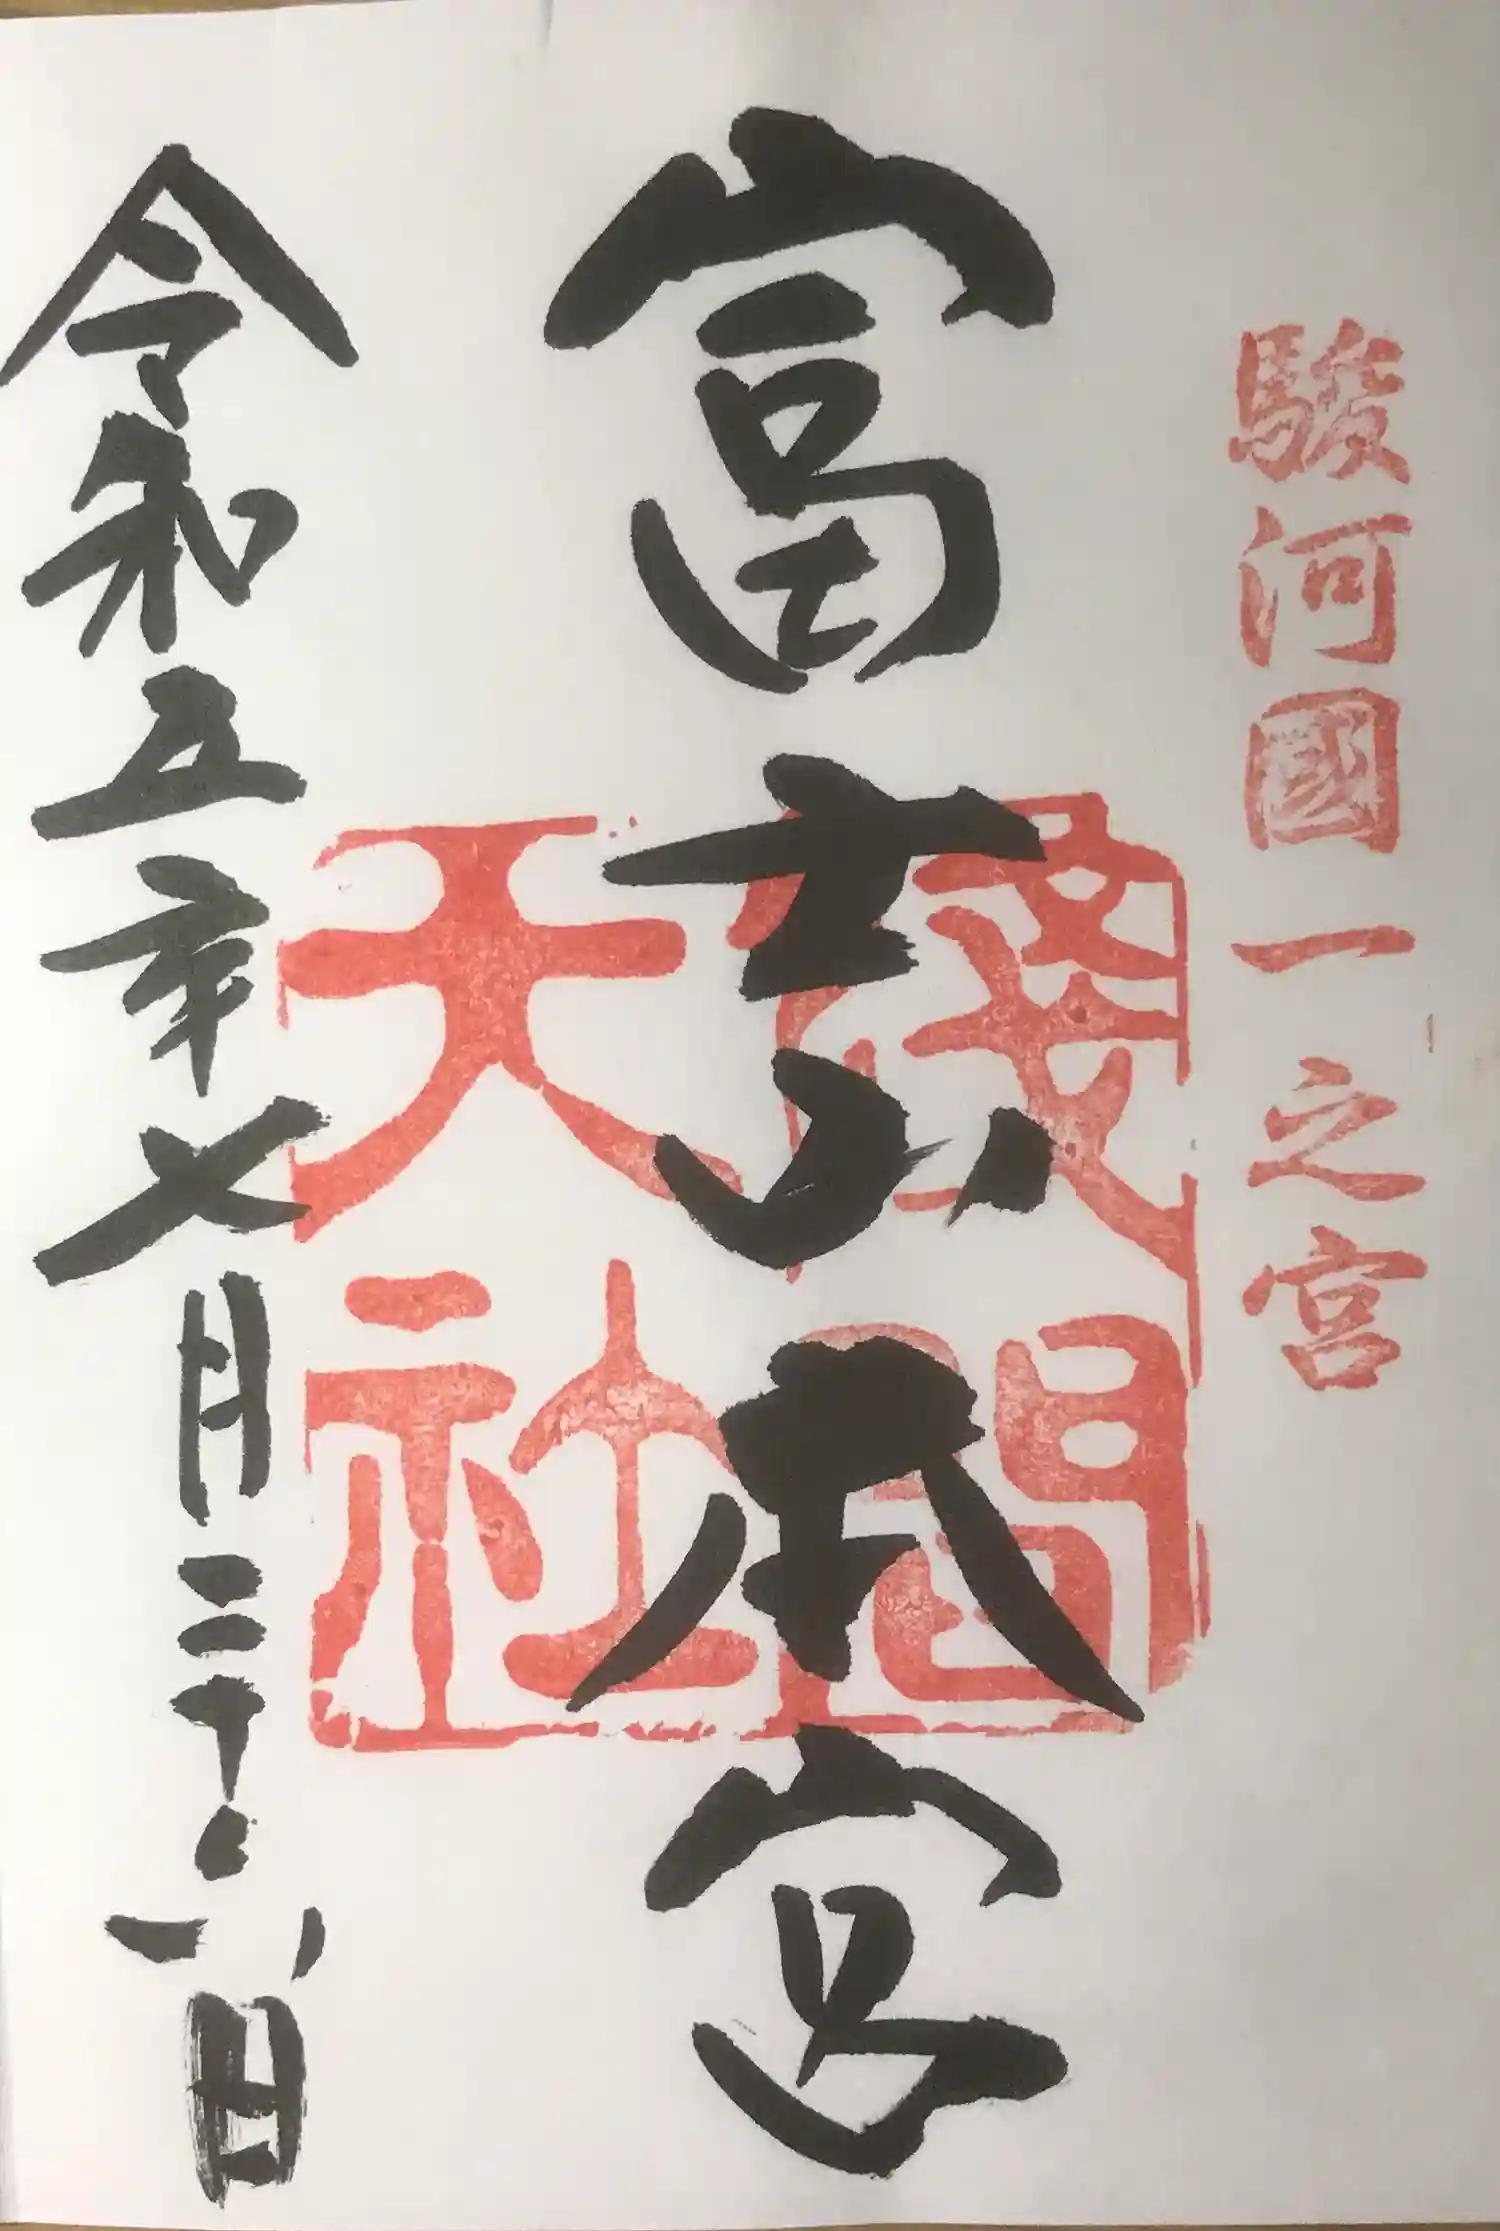 駿河國一之宮
富士山本宮
淺間
天社
令和五年七月二十六日